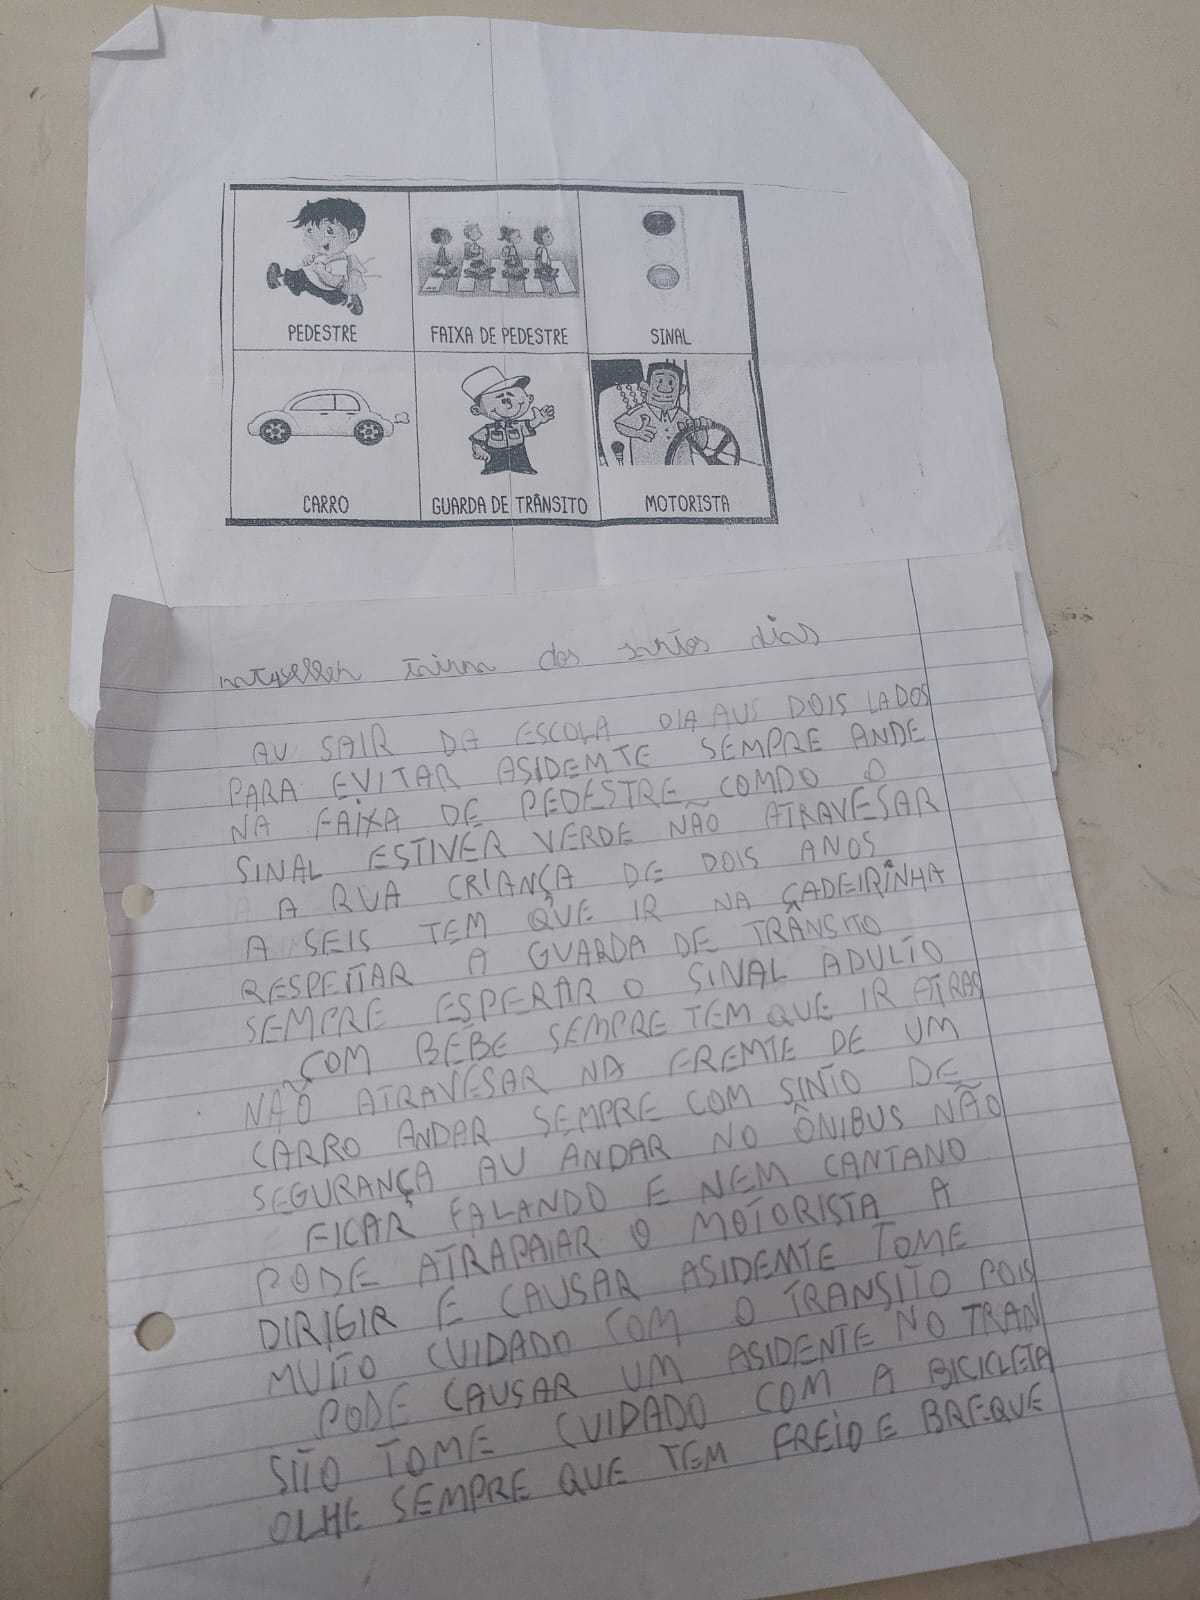 PEDESTRE
FAIXA DE PEDESTRE
SINAL
CARRO
GUARDA DE TRÂNSITO
MOTORISTA
dos dias
AU SAIR DA ESCOLA OIA AUS DOIS LADOS
PARA EVITAR ASIDEMTE SEMPRE ANDE
NA FAIXA DE PEDESTRE COMDO O
SINAL ESTIVER VERDE NÃO ATRAVESAR
A RUA CRIANÇA DE DOIS ANOS
A SEIS TEM QUE IR NA CADEIRINHA
RESPEITAR A GUARDA DE TRÂNSITO
SEMPRE ESPERAR O SINAL ADULTO
COM BÊBE SEMPRE TEM QUE IR ATRAS
NÃO ATRAVESAR NA FREMTE DE UM
CARRO ANDAR SEMPRE COM SINTO DE
SEGURANÇA AU ANDAR NO ÔNIBUS NÃO
FICAR FALANDO E NEM CANTANO
PODE ATRAPAIAR O MOTORISTA A
DIRIGIR E CAUSAR ASIDEMTE TOME
MUITO CUIDADO COM O TRANSITO POIS
PODE CAUSAR UM ASIDENTE NO TRAN
SITO TOME CUIDADO COM A BICICLETA
OLHE SEMPRE QUE TEM FREIO E BREQUE